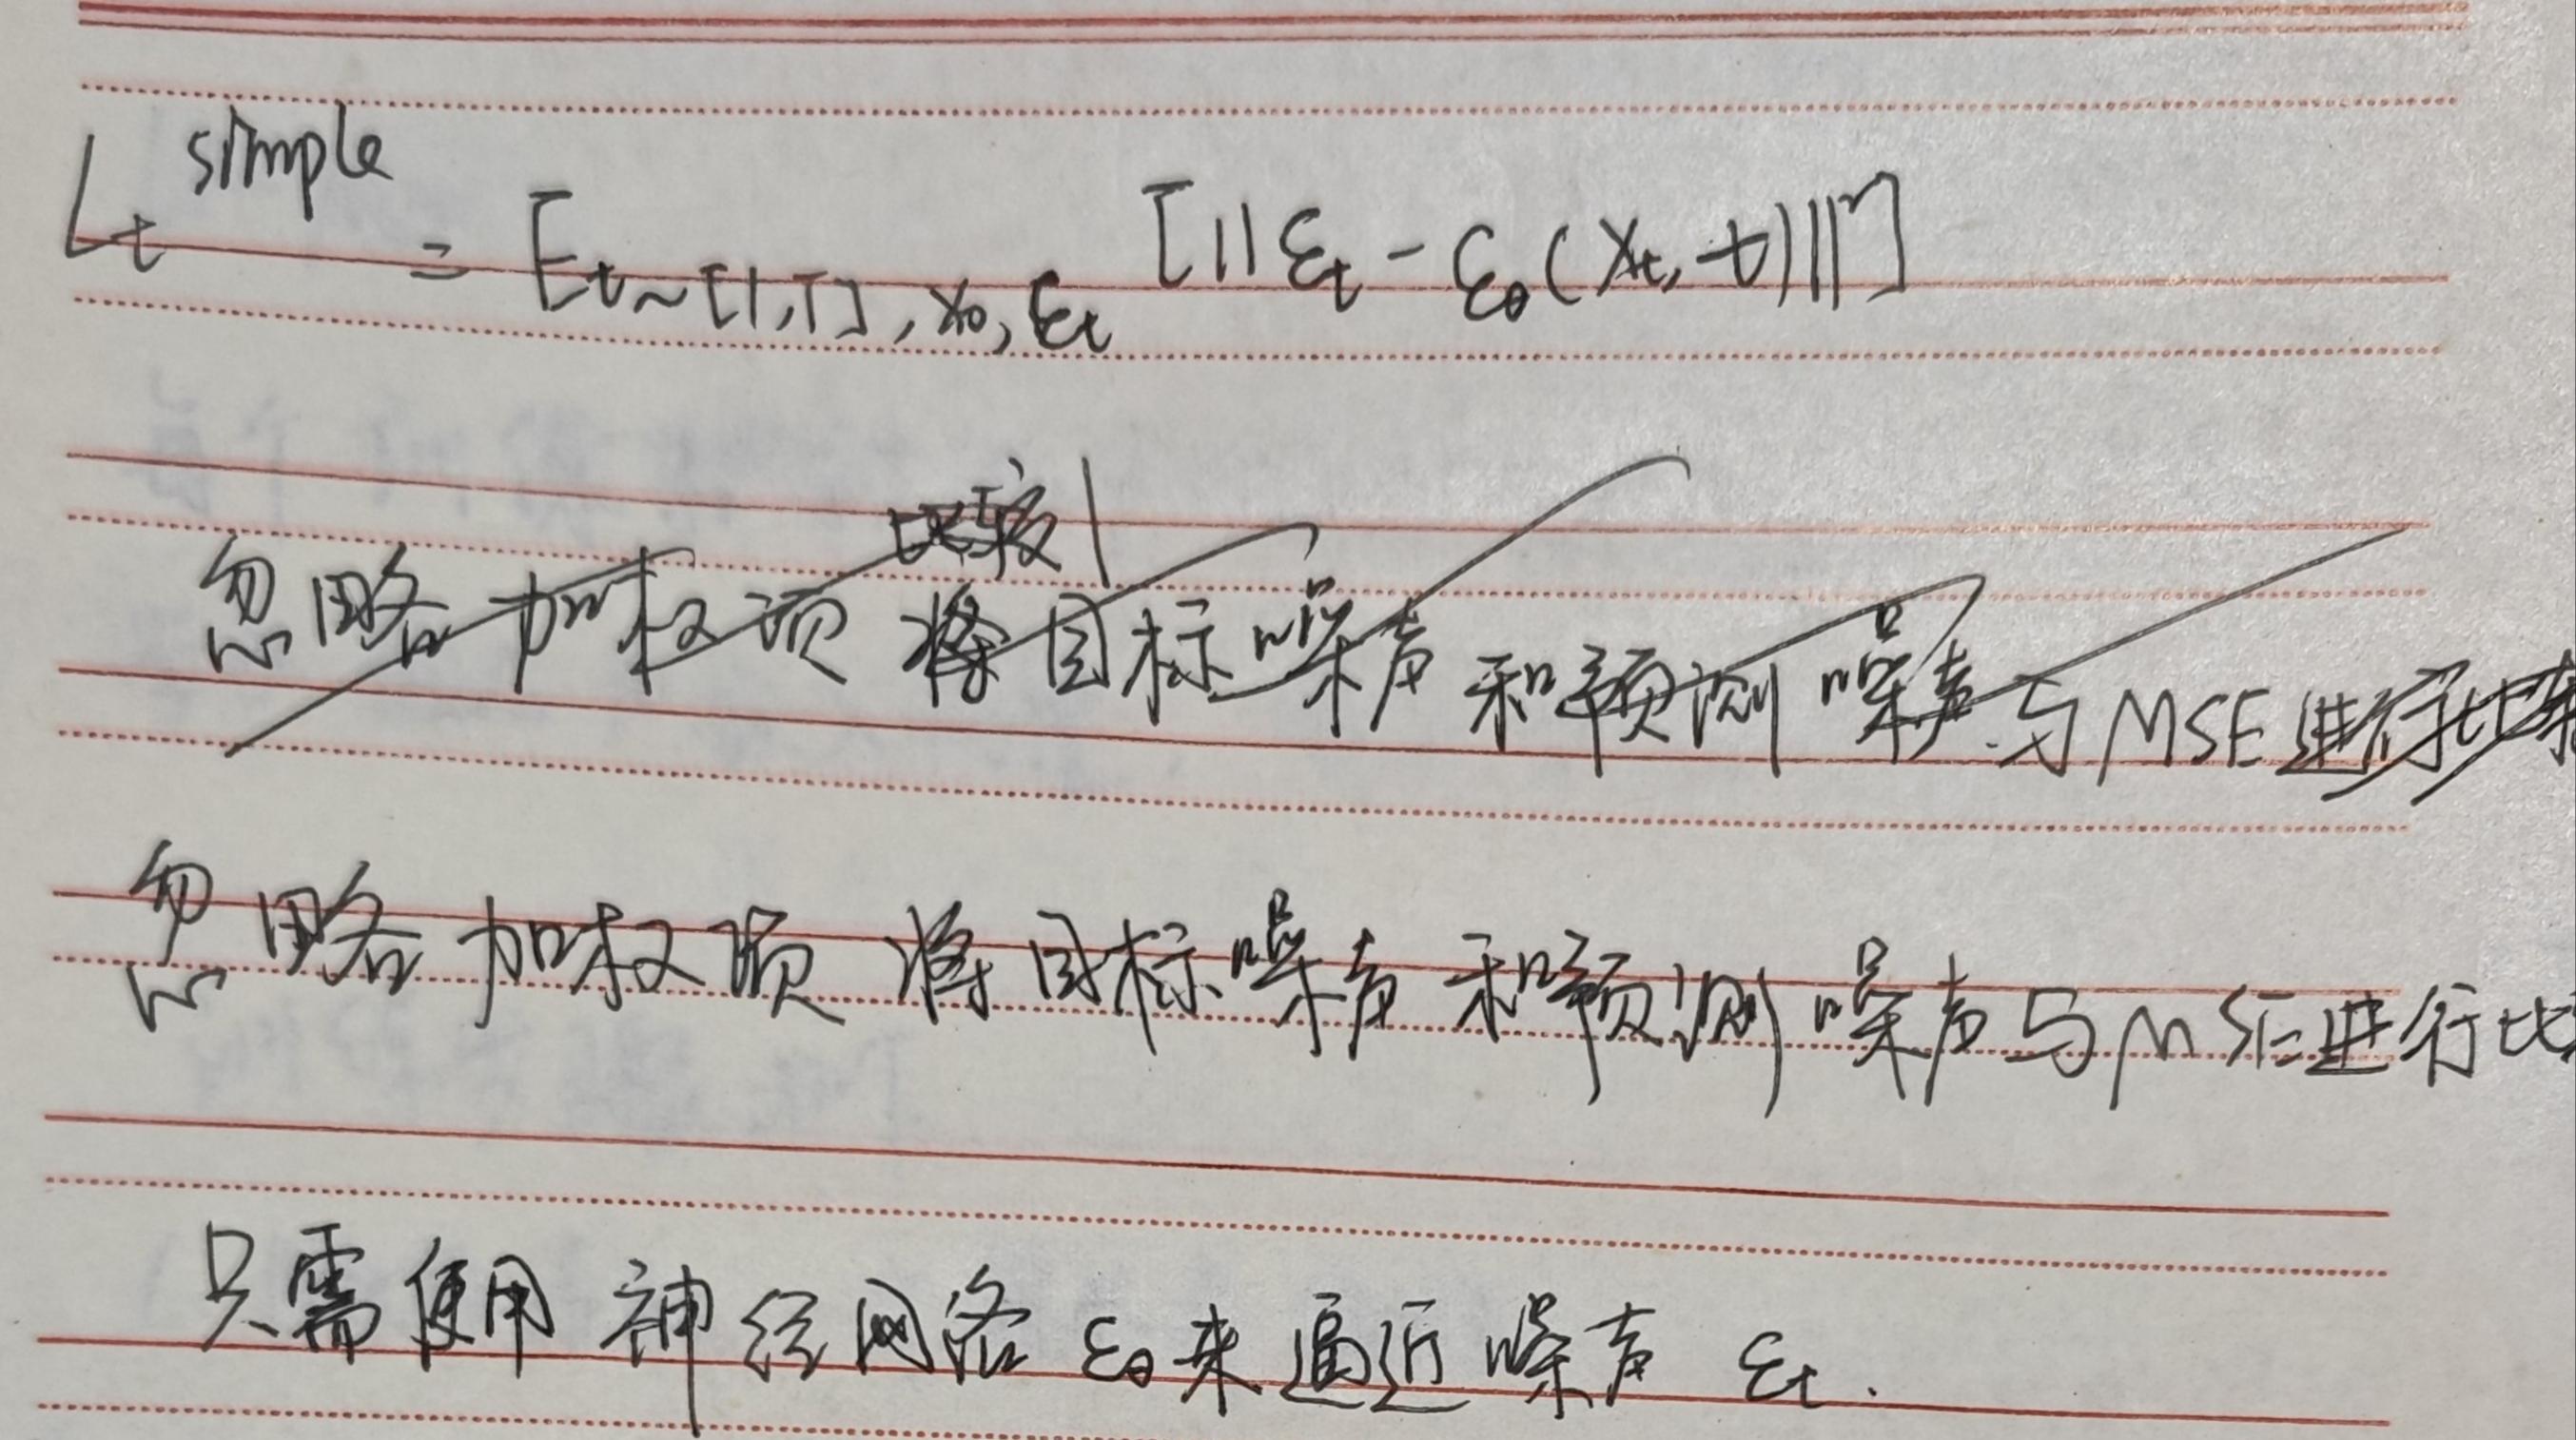 L_t^simple = E_{t~[1,T], x_0, ε_t} [||ε_t - ε_θ(x_t, t)||²]
比较
忽略加权项 将目标噪声和预测噪声与MSE进行比较
忽略加权项 将目标噪声和预测噪声与MSE进行比
只需使用神经网络 ε_θ来逼近噪声 ε_t.